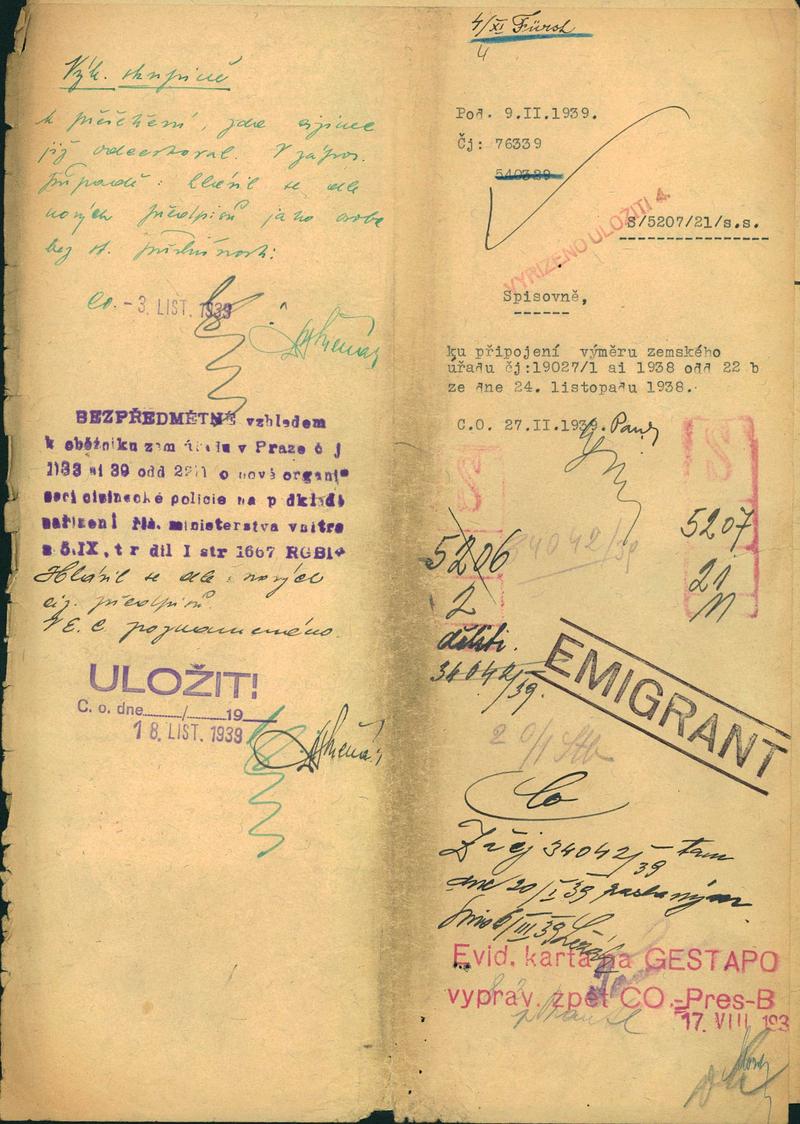 Výk. skupině
k přečtení, zda cizinec
již odcestoval. V zápor.
případě: hlásil se dle
nových předpisů jako osoba
bez st. příslušnosti:
Co. - 3. LIST. 1939
BEZPŘEDMĚTNÉ vzhledem
k oběžníku zem úřadu v Praze č j
1133 ai 39 odd 22/1 o nové organi-
saci cizinecké policie na p dkladě
nařízení říš. ministerstva vnitra
z 5.IX, t r díl I str 1667 RGBl
Hlásil se dle nových
ciz. předpisů.
V E. C. poznamenáno.
ULOŽIT!
C. o. dne____/____19__
18. LIST. 1939
4/XI Fürst
4
Pod. 9.II.1939.
Čj: 76339
540329
VYŘÍZENO ULOŽITI 4.
S/5207/21/s.s.
Spisovně,
ku připojení výměru zemského
úřadu čj:19027/1 ai 1938 odd 22 b
ze dne 24. listopadu 1938.
C.O. 27.II.1939.
S
S
5206
2
34042/39
5207
21
děliti.
34042/39.
EMIGRANT
20/1
Co
Z čj 34042/39 tam
dne 20/I 39 zaslaným
Evid. karta na GESTAPO
vyprav. zpět CO.-Pres-B
17. VIII 193